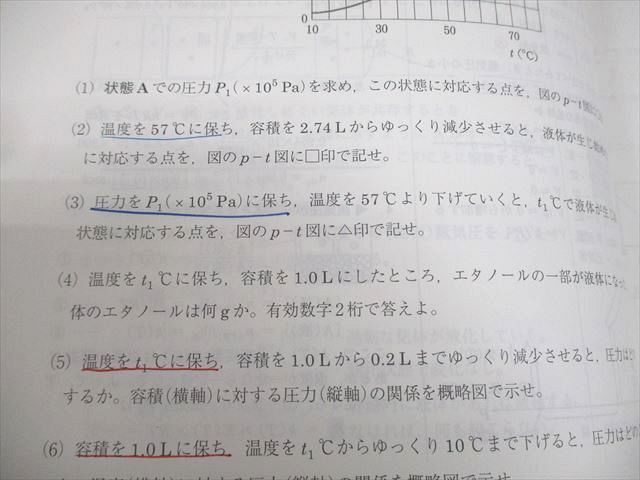 0
10 30 50 70
t(℃)
(1) 状態Aでの圧力P₁(×10⁵Pa)を求め，この状態に対応する点を，図のp-t図に
(2) 温度を57℃に保ち，容積を2.74Lからゆっくり減少させると，液体が生じ
に対応する点を，図のp-t図に□印で記せ。
(3) 圧力をP₁(×10⁵Pa)に保ち，温度を57℃より下げていくと，t₁℃で液体が生じ
状態に対応する点を，図のp-t図に△印で記せ。
(4) 温度をt₁℃に保ち，容積を1.0Lにしたところ，エタノールの一部が液体になっ
体のエタノールは何gか。有効数字2桁で答えよ。
(5) 温度をt₁℃に保ち，容積を1.0Lから0.2Lまでゆっくり減少させると，圧力はど
するか。容積(横軸)に対する圧力(縦軸)の関係を概略図で示せ。
(6) 容積を1.0Lに保ち，温度をt₁℃からゆっくり10℃まで下げると，圧力はど
温度(横軸)に対する圧力(縦軸)の関係を概略図で示せ